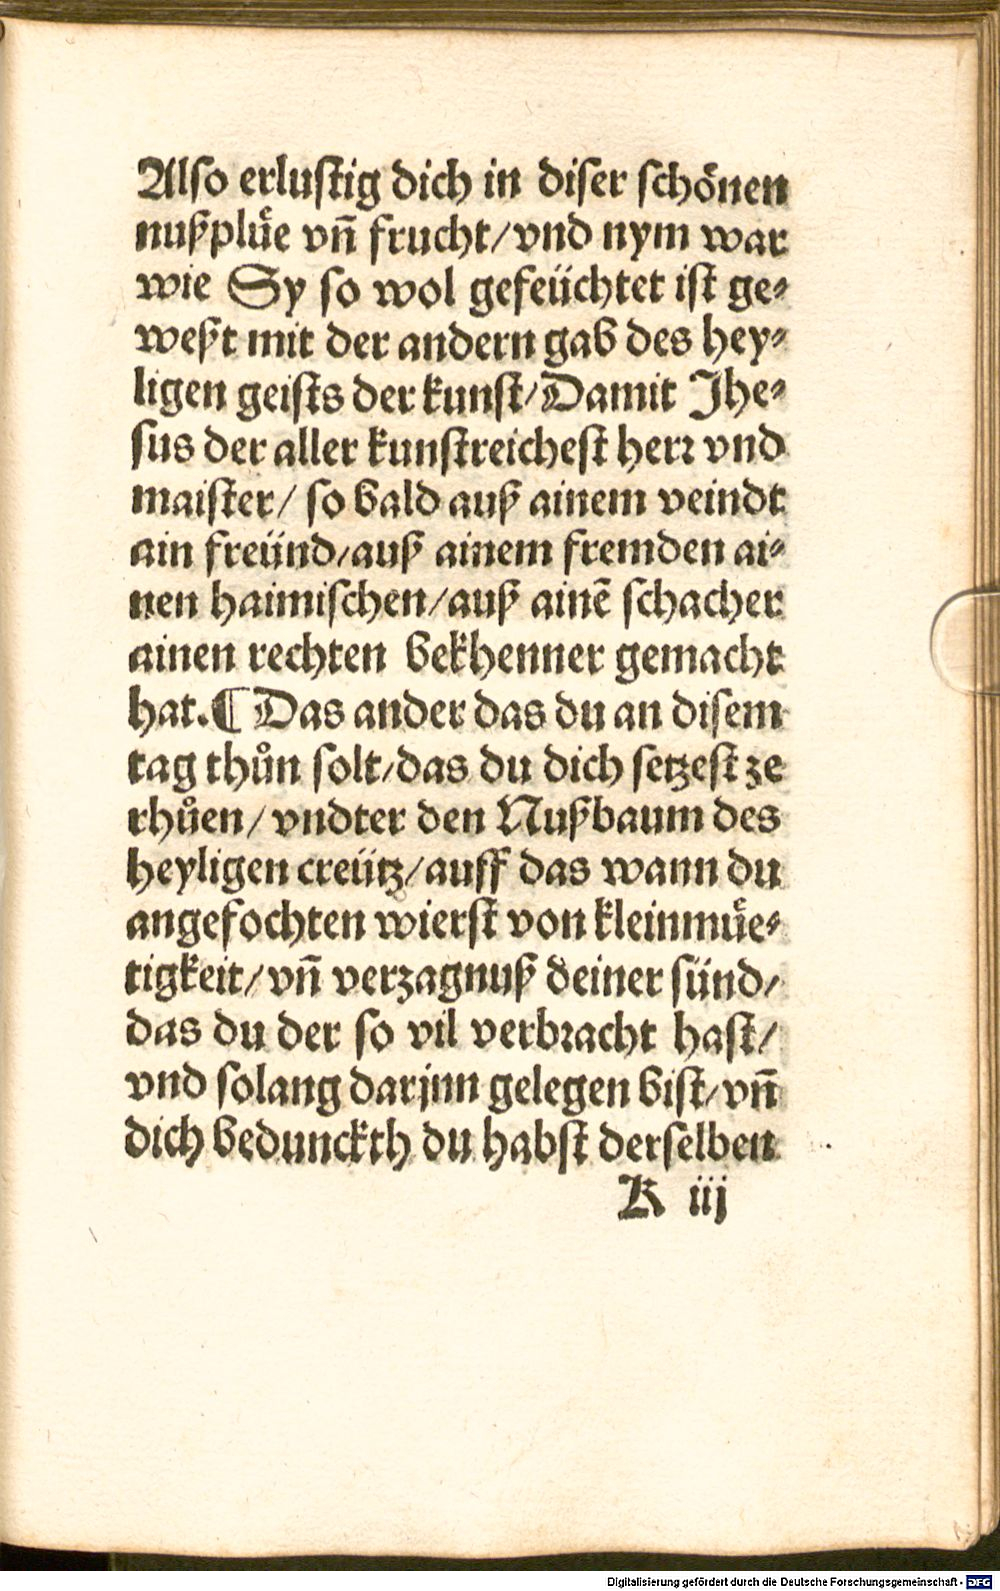 Also erlustig dich in diser schönen
nußplüe vñ frucht/vnd nym war
wie Sy so wol gefeüchtet ist ge⸗
weßt mit der andern gab des hey⸗
ligen geists der kunst/Damit Jhe⸗
sus der aller kunstreichest herr vnd
maister/ so bald auß ainem veindt
ain freünd/auß ainem fremden ai⸗
nen haimischen/auß ainē schacher
ainen rechten bekhenner gemacht
hat.¶ Das ander das du an disem
tag thůn solt/das du dich setzest ze
rhůen/ vndter den Nußbaum des
heyligen creütz/auff das wann du
angefochten wierst von kleinmüe⸗
tigkeit/ vñ verzagnuß deiner sünd/
das du der so vil verbracht hast/
vnd solang darjnn gelegen bist/vñ
dich bedunckth du habst derselben
K iij
Digitalisierung gefördert durch die Deutsche Forschungsgemeinschaft - DFG